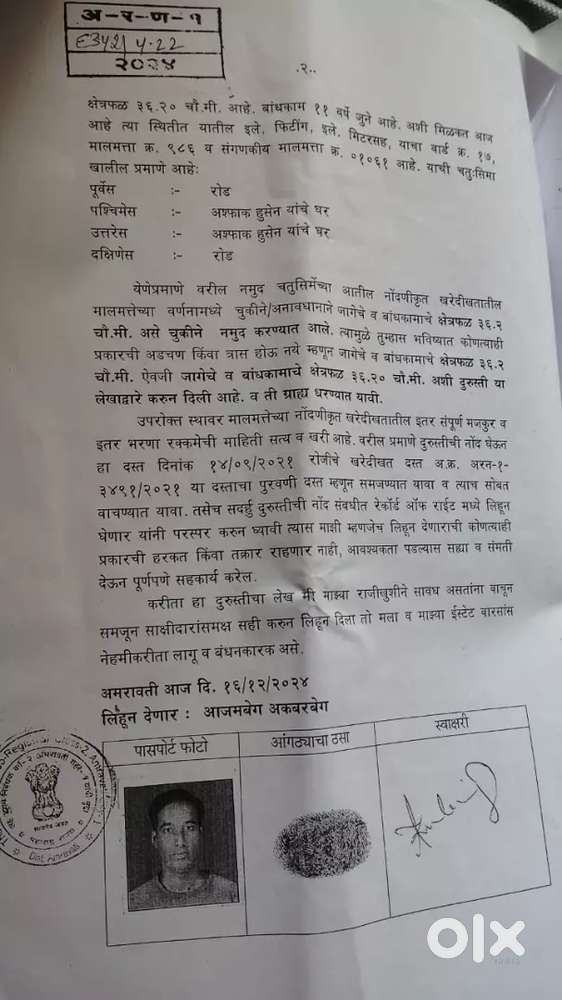 अ-र-ण-१
६३५२/ ४-२२
२०२४
.२..
क्षेत्रफळ ३६.२० चौ.मी. आहे. बांधकाम ११ वर्षे जुने आहे. अशी मिळकत आज
आहे त्या स्थितीत यातील इले. फिटींग, इले. मिटरसह, याचा वार्ड क्र. १७,
मालमत्ता क्र. ९८६ व संगणकीय मालमत्ता क्र. ०१०६१ आहे. याची चतुःसिमा
खालील प्रमाणे आहेः
पूर्वेस :- रोड
पश्चिमेस :- अश्फाक हुसेन यांचे घर
उत्तरेस :- अश्फाक हुसेन यांचे घर
दक्षिणेस :- रोड
येणेप्रमाणे वरील नमुद चतुसिर्मेच्या आतील नोंदणीकृत खरेदीखतातील
मालमत्तेच्या वर्णनामध्ये चुकीने/अनावधानाने जागेचे व बांधकामाचे क्षेत्रफळ ३६.२
चौ.मी. असे चुकीने नमुद करण्यात आले. त्यामुळे तुम्हास भविष्यात कोणत्याही
प्रकारची अडचण किंवा त्रास होऊ नये म्हणून जागेचे व बांधकामाचे क्षेत्रफळ ३६.२
चौ.मी. ऐवजी जागेचे व बांधकामाचे क्षेत्रफळ ३६.२० चौ.मी. अशी दुरुस्ती या
लेखाद्वारे करुन दिली आहे. व ती ग्राह्य धरण्यात यावी.
उपरोक्त स्थावर मालमत्तेच्या नोंदणीकृत खरेदीखतातील इतर संपूर्ण मजकुर व
इतर भरणा रक्कमेची माहिती सत्य व खरी आहे. वरील प्रमाणे दुरुस्तीची नोंद घेऊन
हा दस्त दिनांक १४/०९/२०२१ रोजीचे खरेदीखत दस्त अ.क्र. अरन-१-
३४९१/२०२१ या दस्ताचा पुरवणी दस्त म्हणून समजण्यात यावा व त्याच सोबत
वाचण्यात यावा. तसेच सदर्हु दुरुस्तीची नोंद संबधीत रेकॉर्ड ऑफ राईट मध्ये लिहून
घेणार यांनी परस्पर करुन घ्यावी त्यास माझी म्हणजेच लिहून देणाराची कोणत्याही
प्रकारची हरकत किंवा तक्रार राहणार नाही, आवश्यकता पडल्यास सह्या व संमती
देऊन पूर्णपणे सहकार्य करेल.
करीता हा दुरुस्तीचा लेख मी माझ्या राजीखुशीने सावध असतांना वाचून
समजून साक्षीदारांसमक्ष सही करुन लिहून दिला तो मला व माझ्या ईस्टेट वारसांस
नेहमीकरीता लागू व बंधनकारक असे.
अमरावती आज दि. १६/१२/२०२४
लिहून देणार : आजमबेग अकबरबेग
पासपोर्ट फोटो आंगठ्याचा ठसा स्वाक्षरी
olx